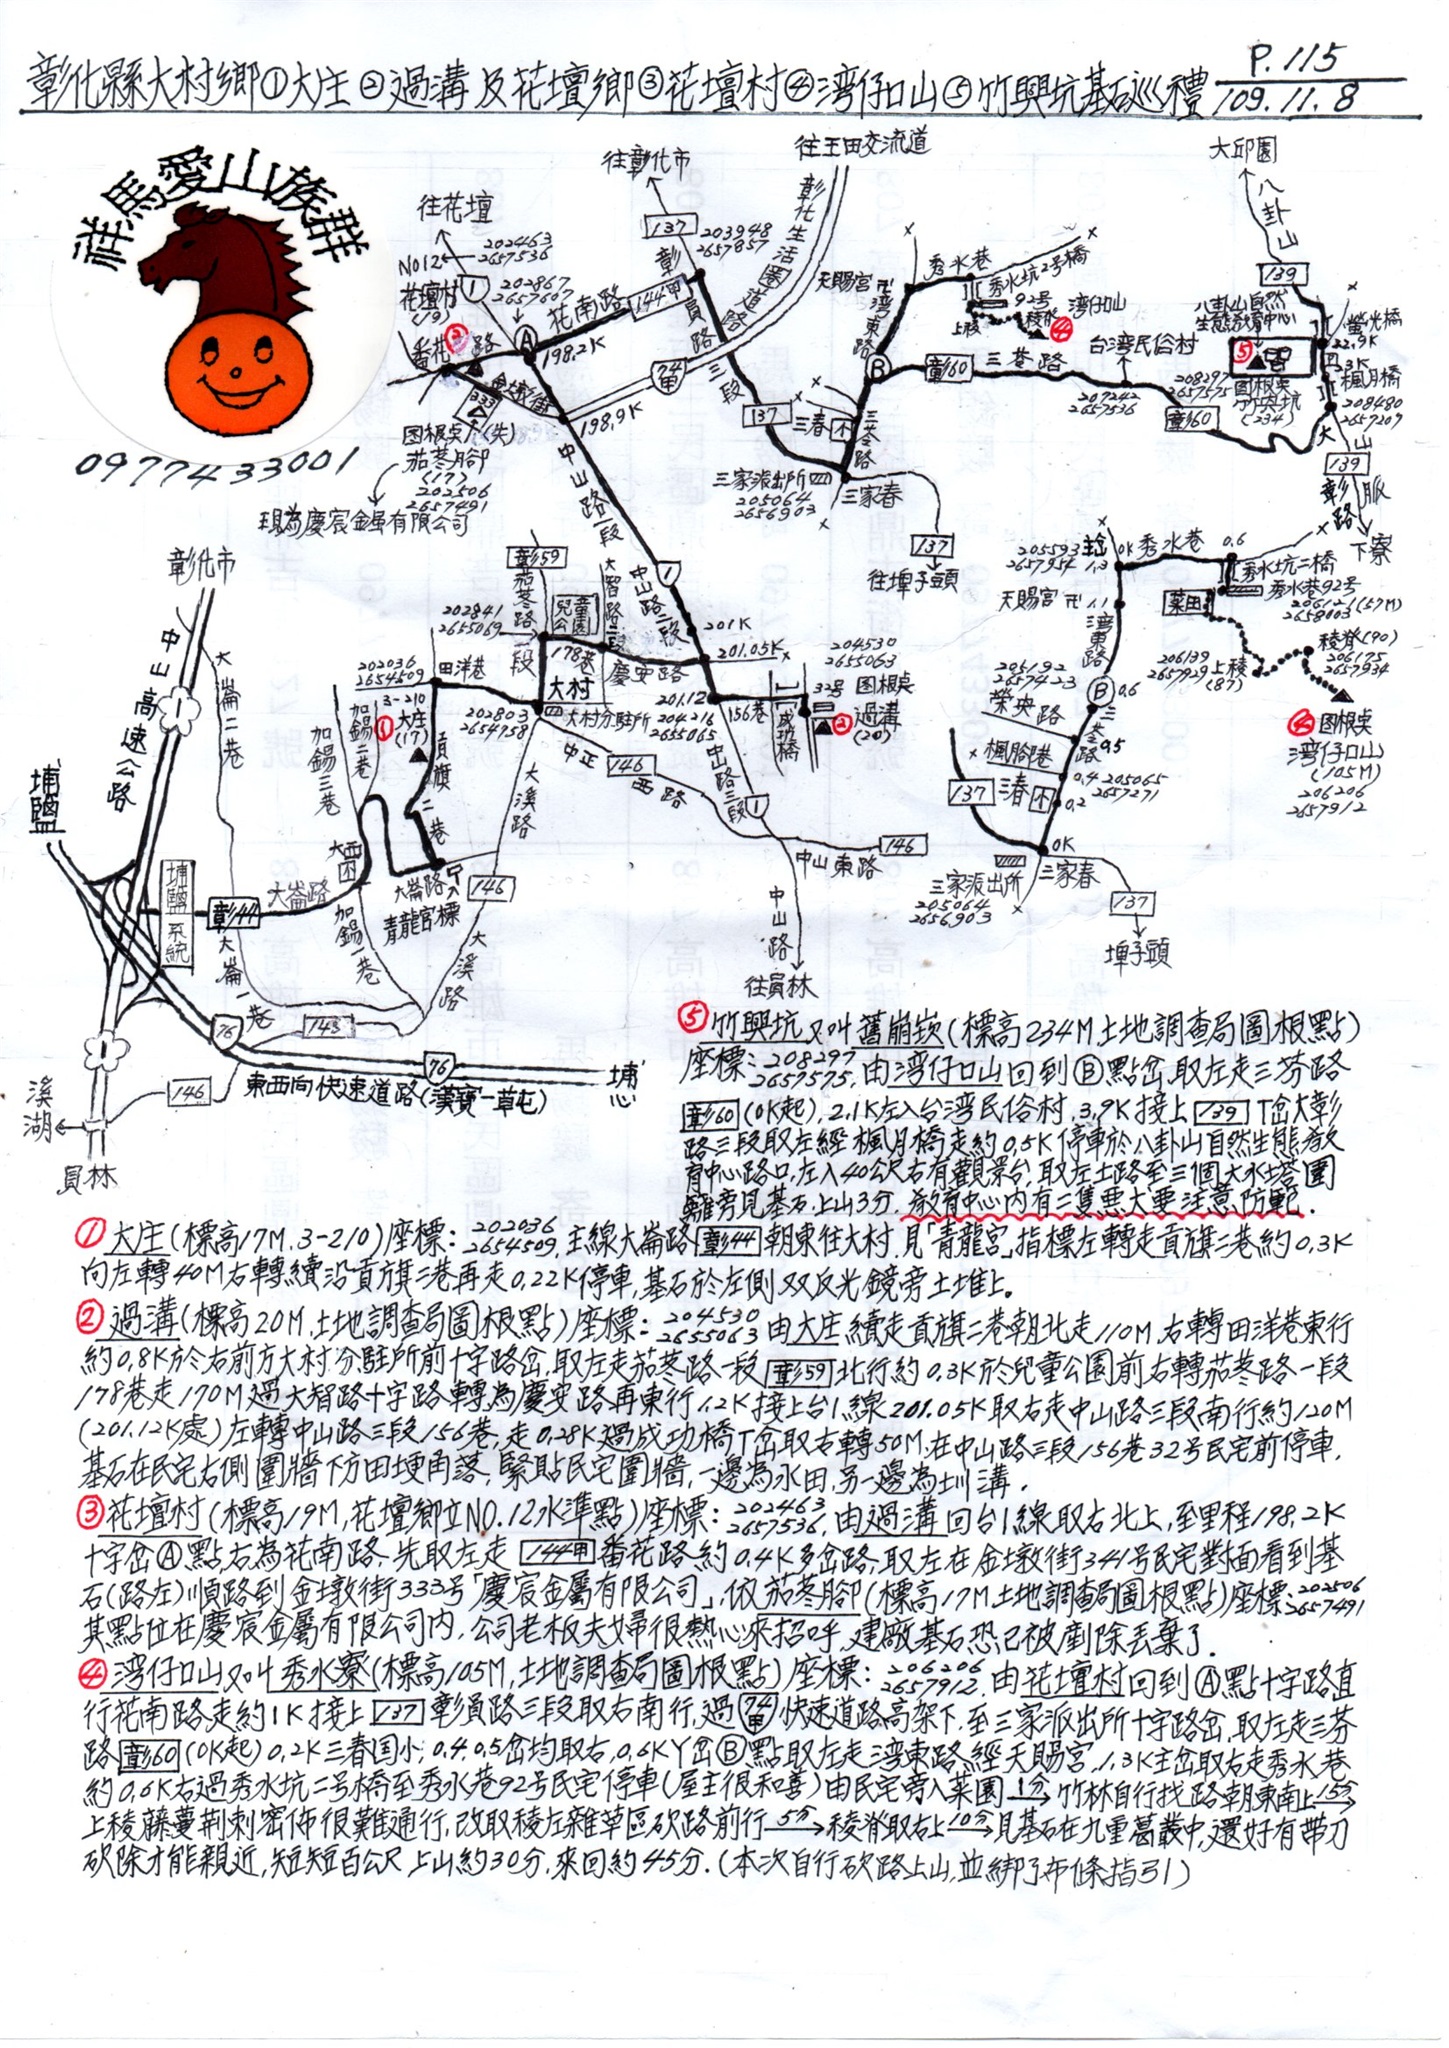 彰化縣大村鄉①大庄②過溝及花壇鄉③花壇村④湾仔口山⑤竹興坑基石巡禮
P.115
109.11.8
祥馬愛山族群
0977433001
往花壇
往彰化市
往王田交流道
大邱園
彰化生活圈道路
八卦山
202463
2657536
NO12
花壇村
(19)
202867
2657607
137
203948
2657857
花南路
144甲
彰員路三段
番花路
198.2K
金墩街
333
198.9K
74甲
图根桌(失)
茄苳腳
(17)
202506
2657491
現為慶宸金属有限公司
天賜宮
秀水巷
秀水坑2号橋
92号
上稜
稜脊
湾仔口山
湾東路
彰60
三芬路
台湾民俗村
207242
2657536
139
八卦山自然
生態教育中心
螢光橋
22.9K
23K
楓月橋
208480
2657209
208297
2657575
图根桌
竹興坑
(234)
彰60
139
彰路
下寮
137
三春
三芬路
三家派出所
205064
2656903
三家春
137
往埤子頭
中山路一段
中山路二段
彰化市
中山高速公路
大崙二巷
埔鹽
埔鹽系統
彰44
大崙路
大西
大崙一巷
加錫三巷
加錫二巷
加錫一巷
202036
2654509
3-210
大庄
(17)
貢旗二巷
田洋巷
202841
2655069
彰59
茄苳路一段
兒童公園
大智路
178巷
慶安路
大村
202803
2654958
大村分駐所
中正西路
146
大溪路
大崙路
青龍宮標
201K
201.05K
201.12
204216
2655065
156巷
成功橋
204530
2655063
32号
图根桌
過溝
(20)
中山路三段
中山東路
146
中山路
往員林
143
146
76
東西向快速道路(漢寶一草屯)
埔心
溪湖
員林
205593
2657954
1.3
0K
秀水巷
0.6
秀水坑二橋
秀水巷92号
206121(57M)
2658003
菜田
天賜宮
1.1
湾東路
206139
2657929
上稜
(87)
稜脊(90)
206175
2657934
图根桌
湾仔口山
(105M)
206206
2657912
205192
2657423
榮央路
0.6
三芬路
0.5
楓腳巷
137
三春
0.4
0.2
205065
2657271
0K
三家派出所
205064
2656903
三家春
137
埤子頭
⑤竹興坑又叫舊崩崁(標高234M土地調查局圖根點)
座標:208297 2657575,由湾仔口山回到Ⓑ點岔取左走三芬路
彰60(0K起),2.1K左入台湾民俗村,3.9K接上139T岔大彰
路三段取左經楓月橋走約0.5K停車於八卦山自然生態教
育中心路口,左入40公尺右有觀景台,取左土路至三個大水塔圍
籬旁見基石,上山3分.教育中心內有二隻惡犬要注意防範.
①大庄(標高17M.3-210)座標:202036 2654509,主線大崙路彰44朝東往大村,見「青龍宮」指標左轉走貢旗二巷約0.3K
向左轉40M右轉續沿貢旗二巷再走0.22K停車,基石於左側双反光鏡旁土堆上。
②過溝(標高20M,土地調查局圖根點)座標:204530 2655063由大庄續走貢旗二巷朝北走110M,右轉田洋巷東行
約0.8K於右前方大村分駐所前十字路岔,取左走茄苳路一段彰59北行約0.3K於兒童公園前右轉茄苳路一段
178巷走170M過大智路十字路轉為慶安路再東行1.2K接上台1線201.05K取右走中山路三段南行約120M
(201.12K處)左轉中山路三段156巷,走0.28K過成功橋T岔取右轉50M,在中山路三段156巷32号民宅前停車,
基石在民宅右側圍牆下方田埂角落,緊貼民宅圍牆,一邊為水田,另一邊為圳溝.
③花壇村(標高19M,花壇鄉立NO.12水準點)座標:202463 2657536,由過溝回台1線取右北上,至里程198.2K
十字岔Ⓐ點,右為花南路,先取左走144甲番花路約0.4K多岔路,取左在金墩街341号民宅對面看到基
石(路左)順路到金墩街333号「慶宸金屬有限公司」,依茄苳腳(標高17M土地調查局圖根點)座標:202506 2657491
其點位在慶宸金屬有限公司內,公司老板夫婦很熱心來招呼,建廠基石恐已被剷除丟棄了.
④湾仔口山又叫秀水寮(標高105M,土地調查局圖根點)座標:206206 2657912,由花壇村回到Ⓐ點十字路直
行花南路走約1K接上137彰員路三段取右南行,過74甲快速道路高架下,至三家派出所十字路岔,取左走三芬
路彰60(0K起)0.2K三春国小,0.4,0.5岔均取右,0.6KY岔Ⓑ點取左走湾東路經天賜宮,1.3K主岔取右走秀水巷
約0.6K右過秀水坑二号橋至秀水巷92号民宅停車(屋主很和善)由民宅旁入菜園1分→竹林自行找路朝東南上15分→
上稜藤蔓荊刺密佈很難通行,改取稜左雜草區砍路前行5分→稜脊取右上10分→見基石在九重葛叢中,還好有帶刀
砍除才能親近,短短百公尺上山約30分,來回約45分.(本次自行砍路上山,並綁了布條指引)